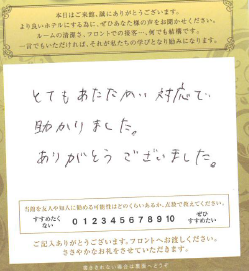 本日はご来館、誠にありがとうございます。
より良いホテルにする為に、ぜひあなた様の声をお聞かせください。
ルームの清潔さ、フロントでの接客…、何でも結構です。
一言でもいただければ、それが私たちの学びとなり励みになります。
とてもあたたかい対応で
助かりました。
ありがとうございました。
当館を友人や知人に勧める可能性はどのくらいあるか、点数で教えてください。
すすめたく
ない
0 1 2 3 4 5 6 7 8 9 10
ぜひ
すすめたい
ご記入ありがとうございます。フロントへお渡しください。
ささやかなお礼をさせていただきます。